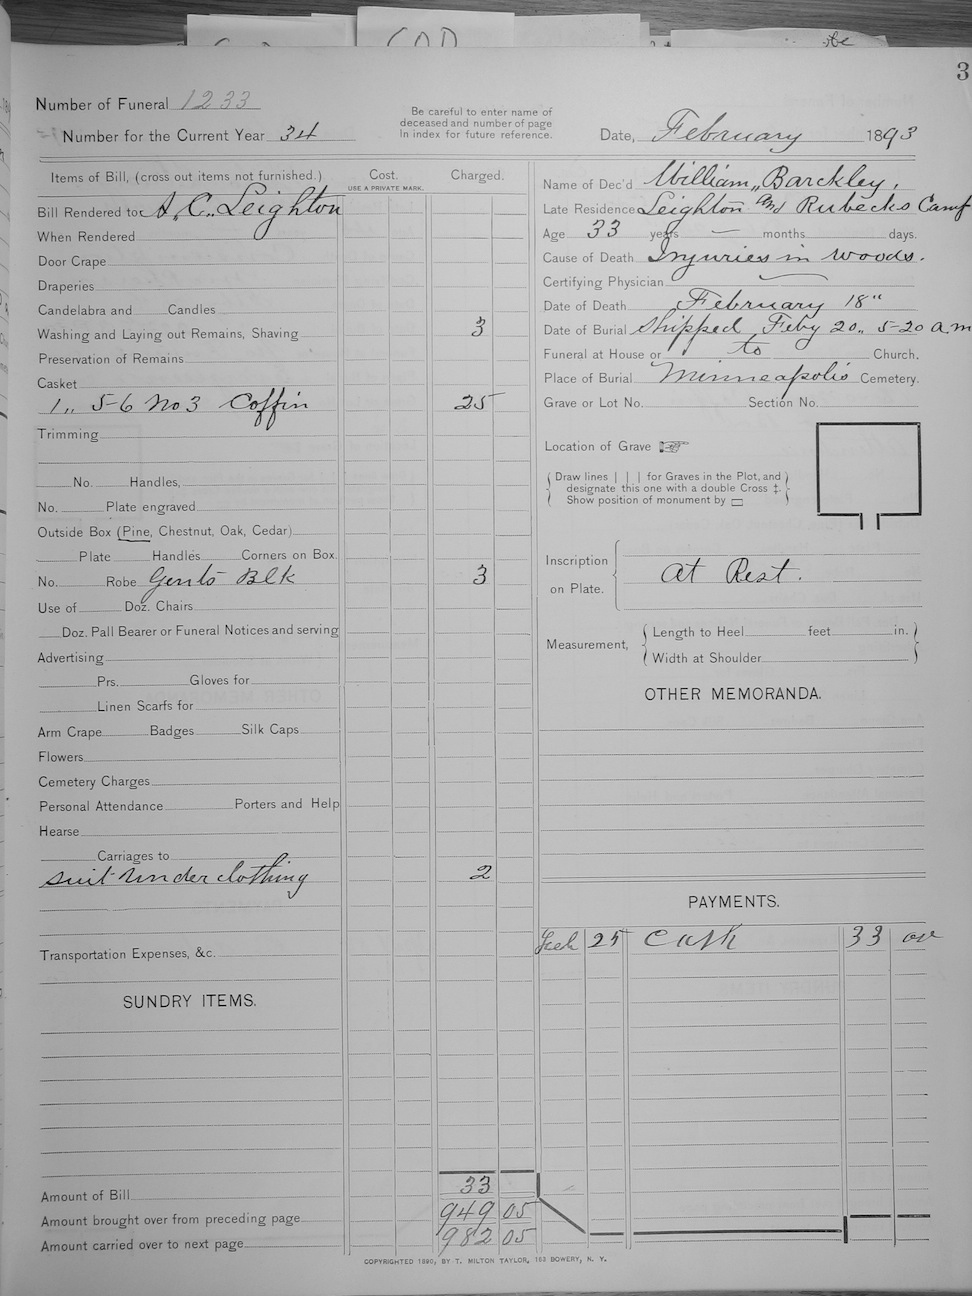 COD
3
Number of Funeral 1233
Number for the Current Year 34
Be careful to enter name of
deceased and number of page
in index for future reference.
Date, February 1893
Items of Bill, (cross out items not furnished.) Cost. Charged.
USE A PRIVATE MARK.
Bill Rendered to A, C,, Leighton
When Rendered
Door Crape
Draperies
Candelabra and Candles
Washing and Laying out Remains, Shaving 3
Preservation of Remains
Casket
1,, 5-6 No 3 Coffin 25
Trimming
No. Handles,
No. Plate engraved
Outside Box (Pine, Chestnut, Oak, Cedar)
Plate Handles Corners on Box.
No. Robe Gents Blk 3
Use of Doz. Chairs
Doz. Pall Bearer or Funeral Notices and serving
Advertising
Prs. Gloves for
Linen Scarfs for
Arm Crape Badges Silk Caps
Flowers
Cemetery Charges
Personal Attendance Porters and Help
Hearse
Carriages to
suit under clothing 2
Transportation Expenses, &c.
SUNDRY ITEMS.
Amount of Bill 33
Amount brought over from preceding page 949 05
Amount carried over to next page 982 05
Name of Dec'd William,, Barckley,
Late Residence Leighton and Rubecks Camp
Age 33 years — months days.
Cause of Death Injuries in woods.
Certifying Physician
Date of Death February 18"
Date of Burial Shipped Feby 20,, 5-20 a.m
Funeral at House or to Church.
Place of Burial Minneapolis Cemetery.
Grave or Lot No. Section No.
Location of Grave ☞
Draw lines | | | for Graves in the Plot, and
designate this one with a double Cross ‡.
Show position of monument by ▭
Inscription
on Plate.
At Rest.
Measurement, Length to Heel feet in.
Width at Shoulder
OTHER MEMORANDA.
PAYMENTS.
Feb 25 Cash 33 00
COPYRIGHTED 1890, BY T. MILTON TAYLOR, 163 BOWERY, N. Y.